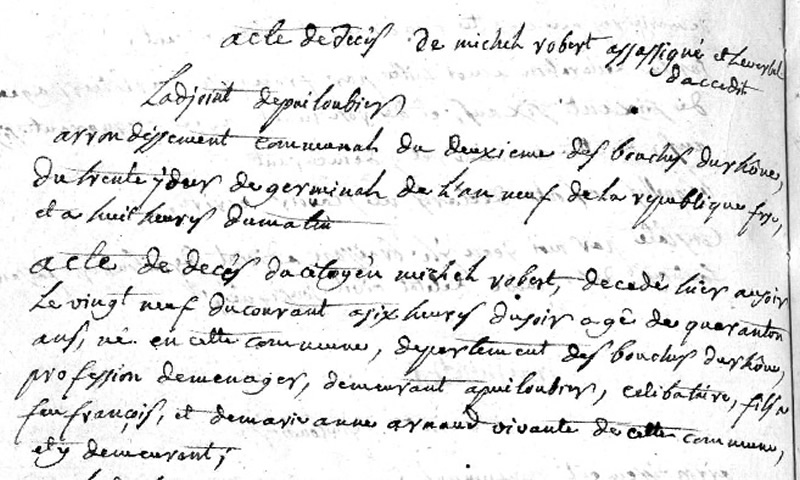 acte de decés de michel robert assassigné et le verbal
d'accedit
Ladjoint depuiloubier
arrondissement communal du deuxieme des bouches durhône,
du trente jdus de germinal de l'an neuf de la republique fse,
et a huit heures dumatin
acte de decés du citoyen michel robert, decedé hier ausoir
Le vingt neuf ducourant asix heures dusoir agé de quaranton
ans, né en cette commune, departement des bouches durhône,
profession demenager, demeurant apuiloubier, celibataire, fils a
feu françois, et demarie anne arnaud vivante de cette commune,
et y demeurant;